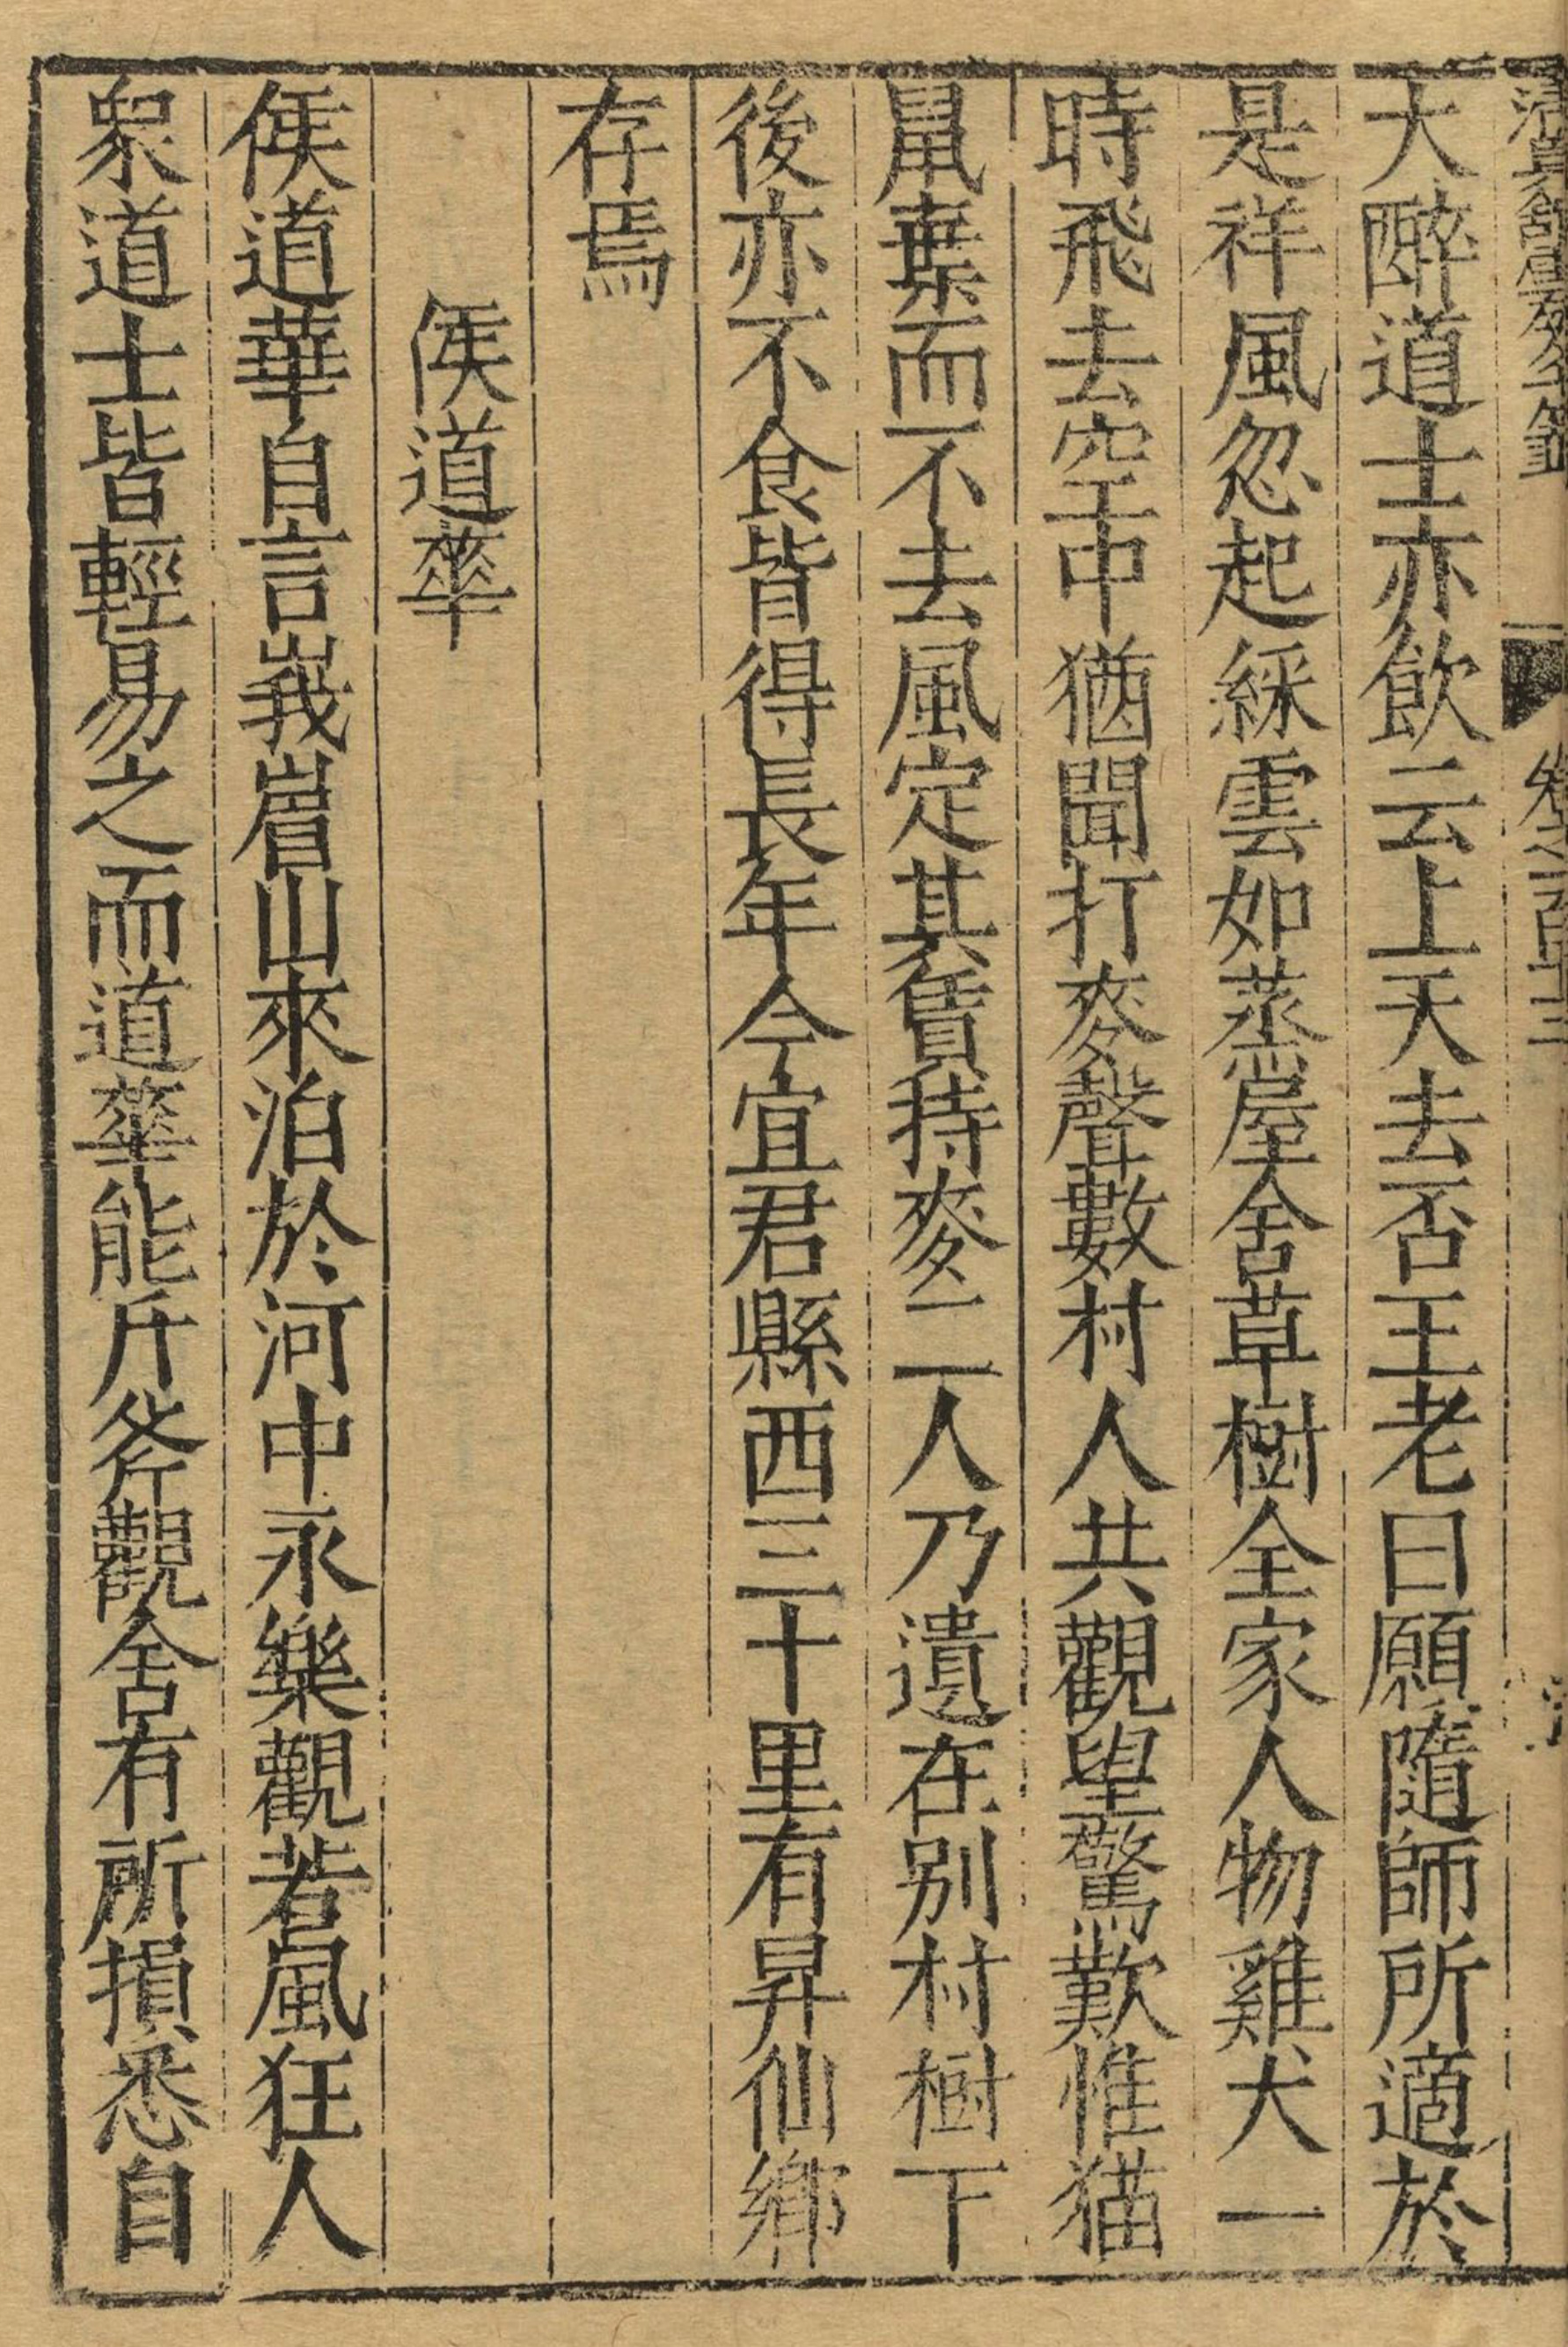 大醉道士亦飲云上天去否王老曰願隨師所適於
是祥風忽起綵雲如蒸屋舍草樹全家人物雞犬一
時飛去空中猶聞打麥聲數村人共觀望驚歎惟猫
鼠棄而不去風定其賃持麥二人乃遺在别村樹下
後亦不食皆得長年今宜君縣西三十里有昇仙鄉
存焉
侯道華
侯道華自言峩嵋山來泊於河中永樂觀若風狂人
眾道士皆輕易之而道華能斤斧觀舍有所損悉自